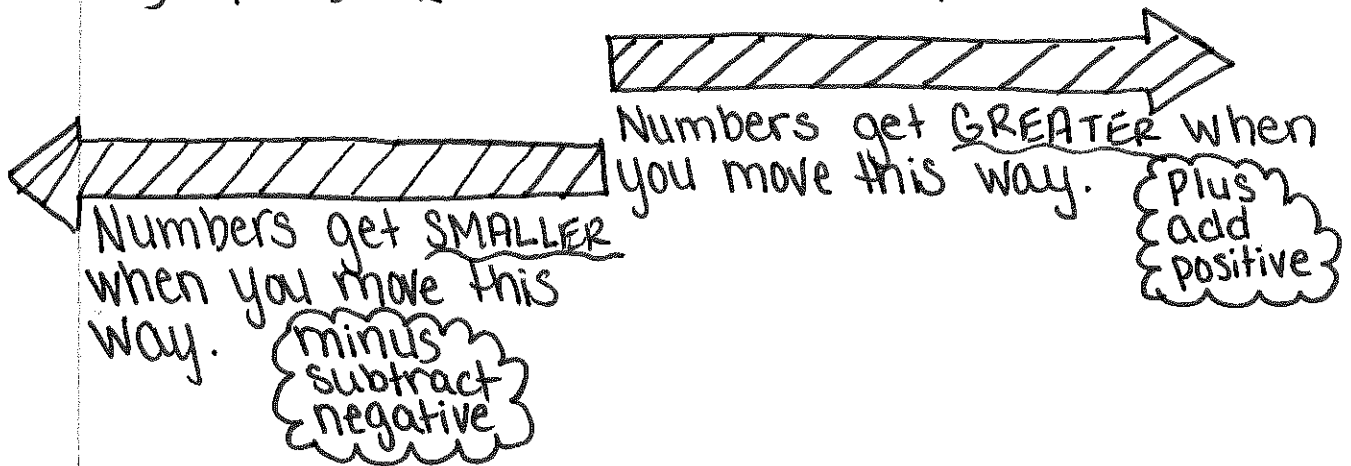 Numbers get GREATER when
you move this way.
plus
add
positive
Numbers get SMALLER
when you move this
way.
minus
subtract
negative